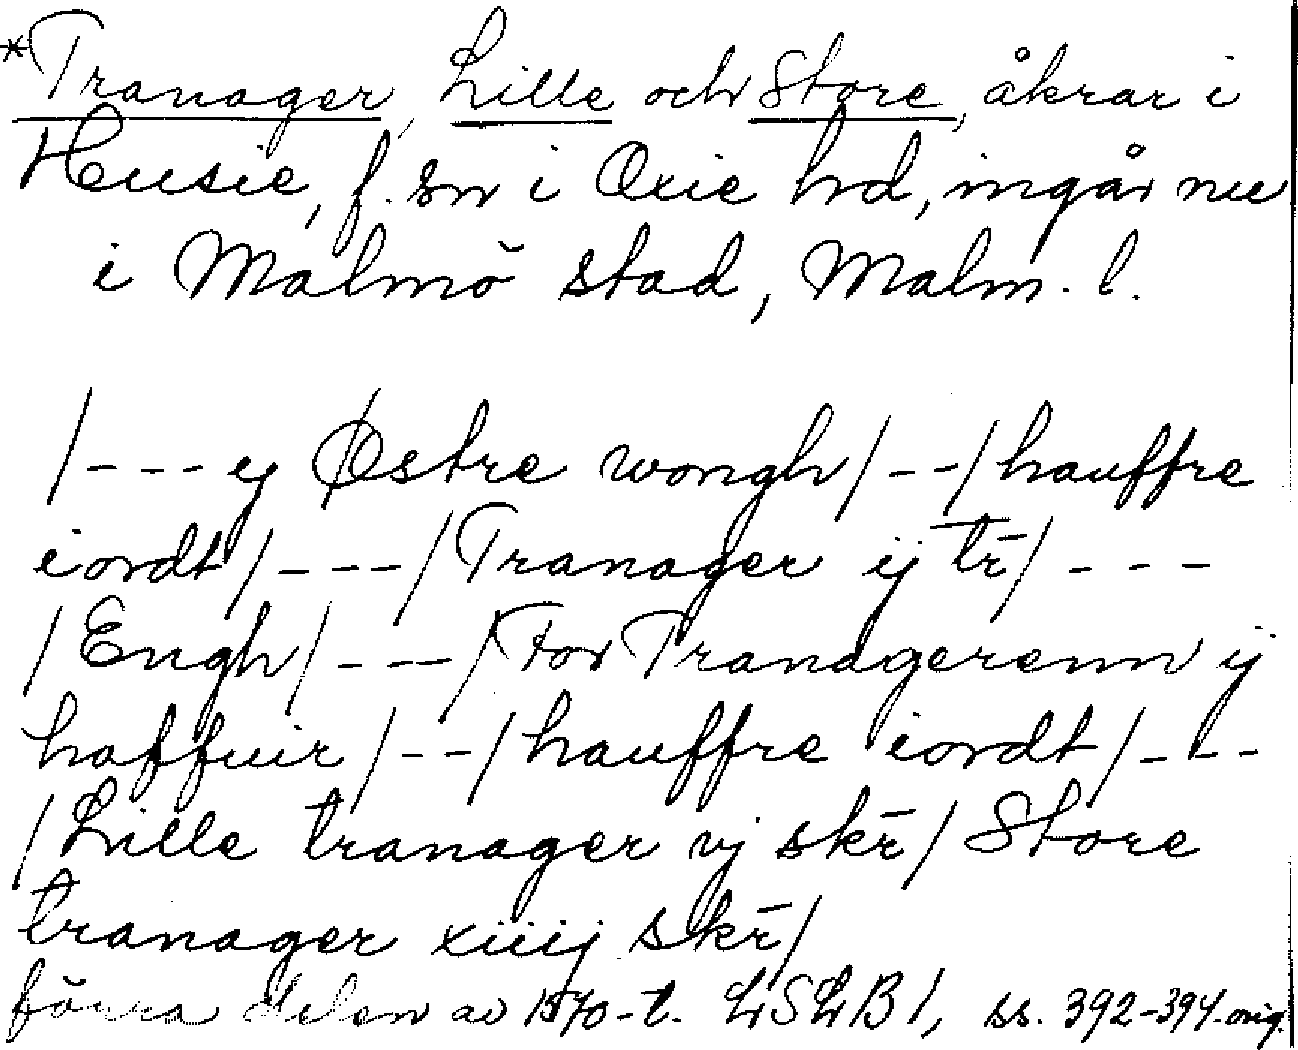 *Tranager, Lille och Store, åkrar i
Husie, f. sn i Oxie hd, ingår nu
i Malmö stad, Malm. l.
/--- ij Østre wongh/--/hauffre
iordt/---/Tranager ij tr̄/---
/Engh/---/For Tranagerenn ij
haffuir/--/hauffre iordt/---
/Lille tranager vj skr̄/Store
tranager xiiij skr̄/
förra delen av 1570-t. LSLB 1, ss. 392-394. orig.